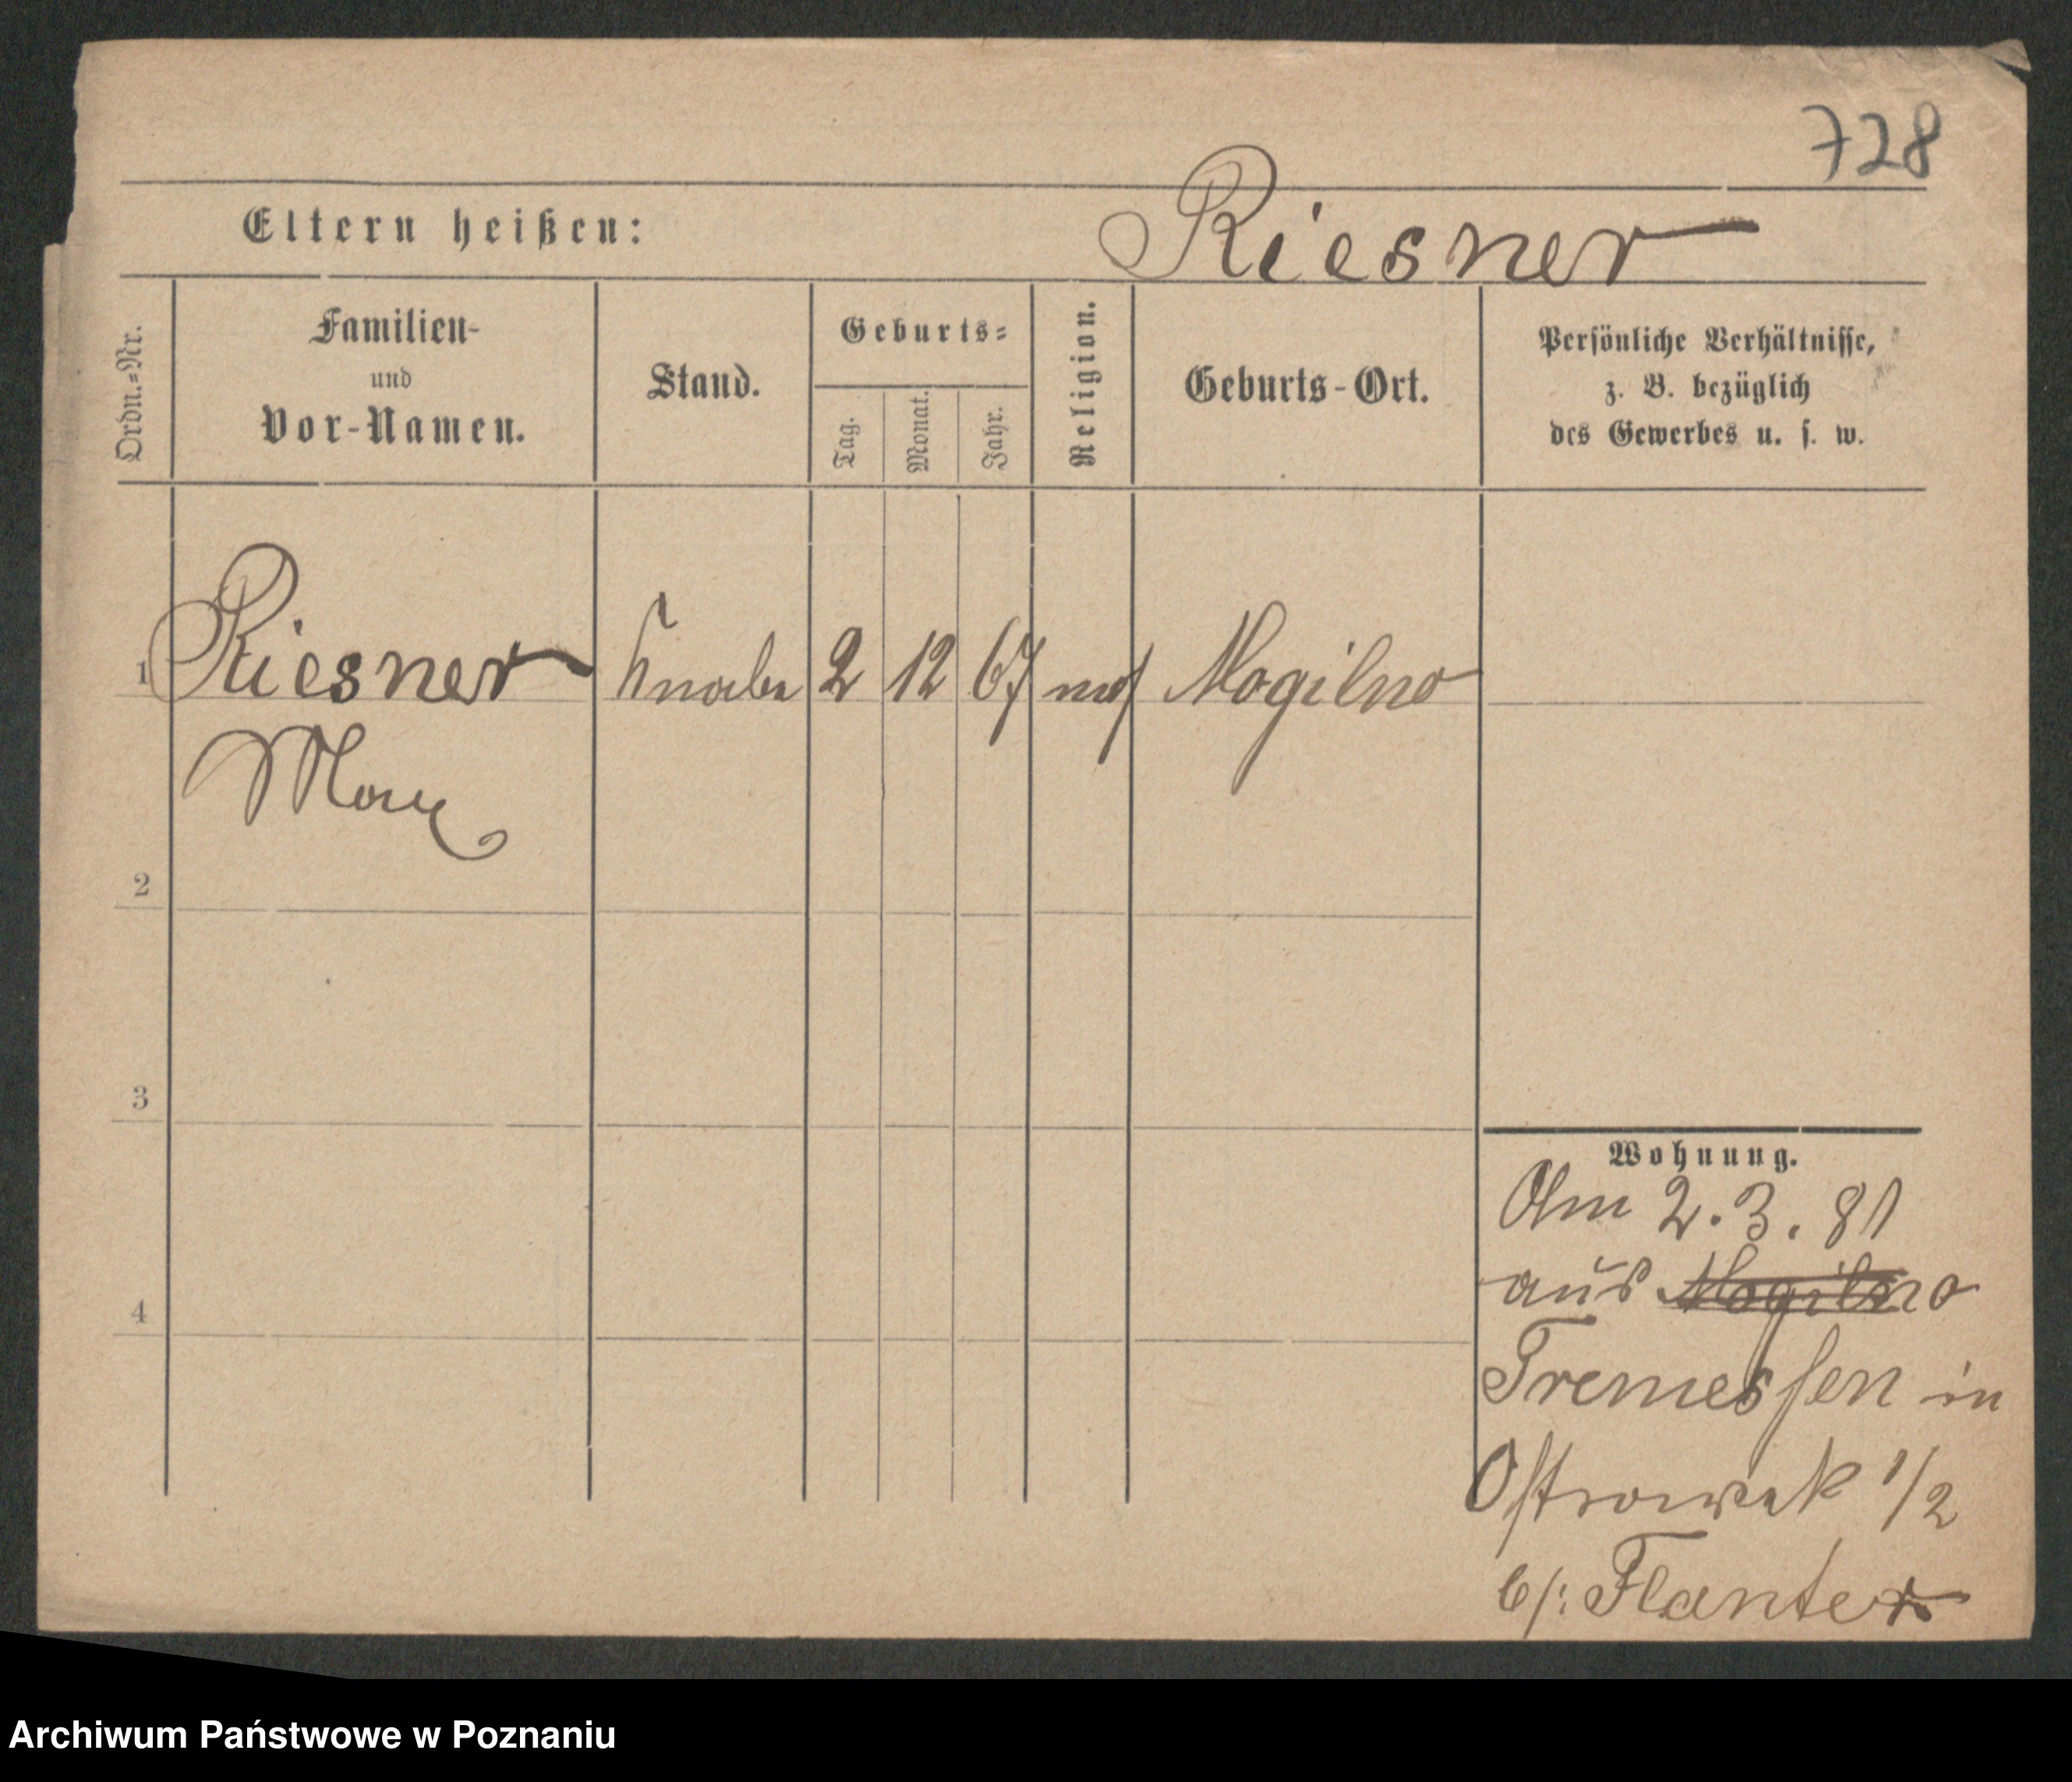 728
Eltern heißen: Riesner
Ordn.=Nr.
Familien-
und
Vor-Namen.
Stand.
Geburts=
Tag.
Monat.
Jahr.
Religion.
Geburts-Ort.
Persönliche Verhältnisse,
z. B. bezüglich
des Gewerbes u. s. w.
1 Riesner Knabe 2 12 67 mos Mogilno
Max
2
3
4
Wohnung.
Am 2. 3. 81
aus Mogilno
Tremessen in
Ostrowek 1/2
b/: Flanter
Archiwum Państwowe w Poznaniu